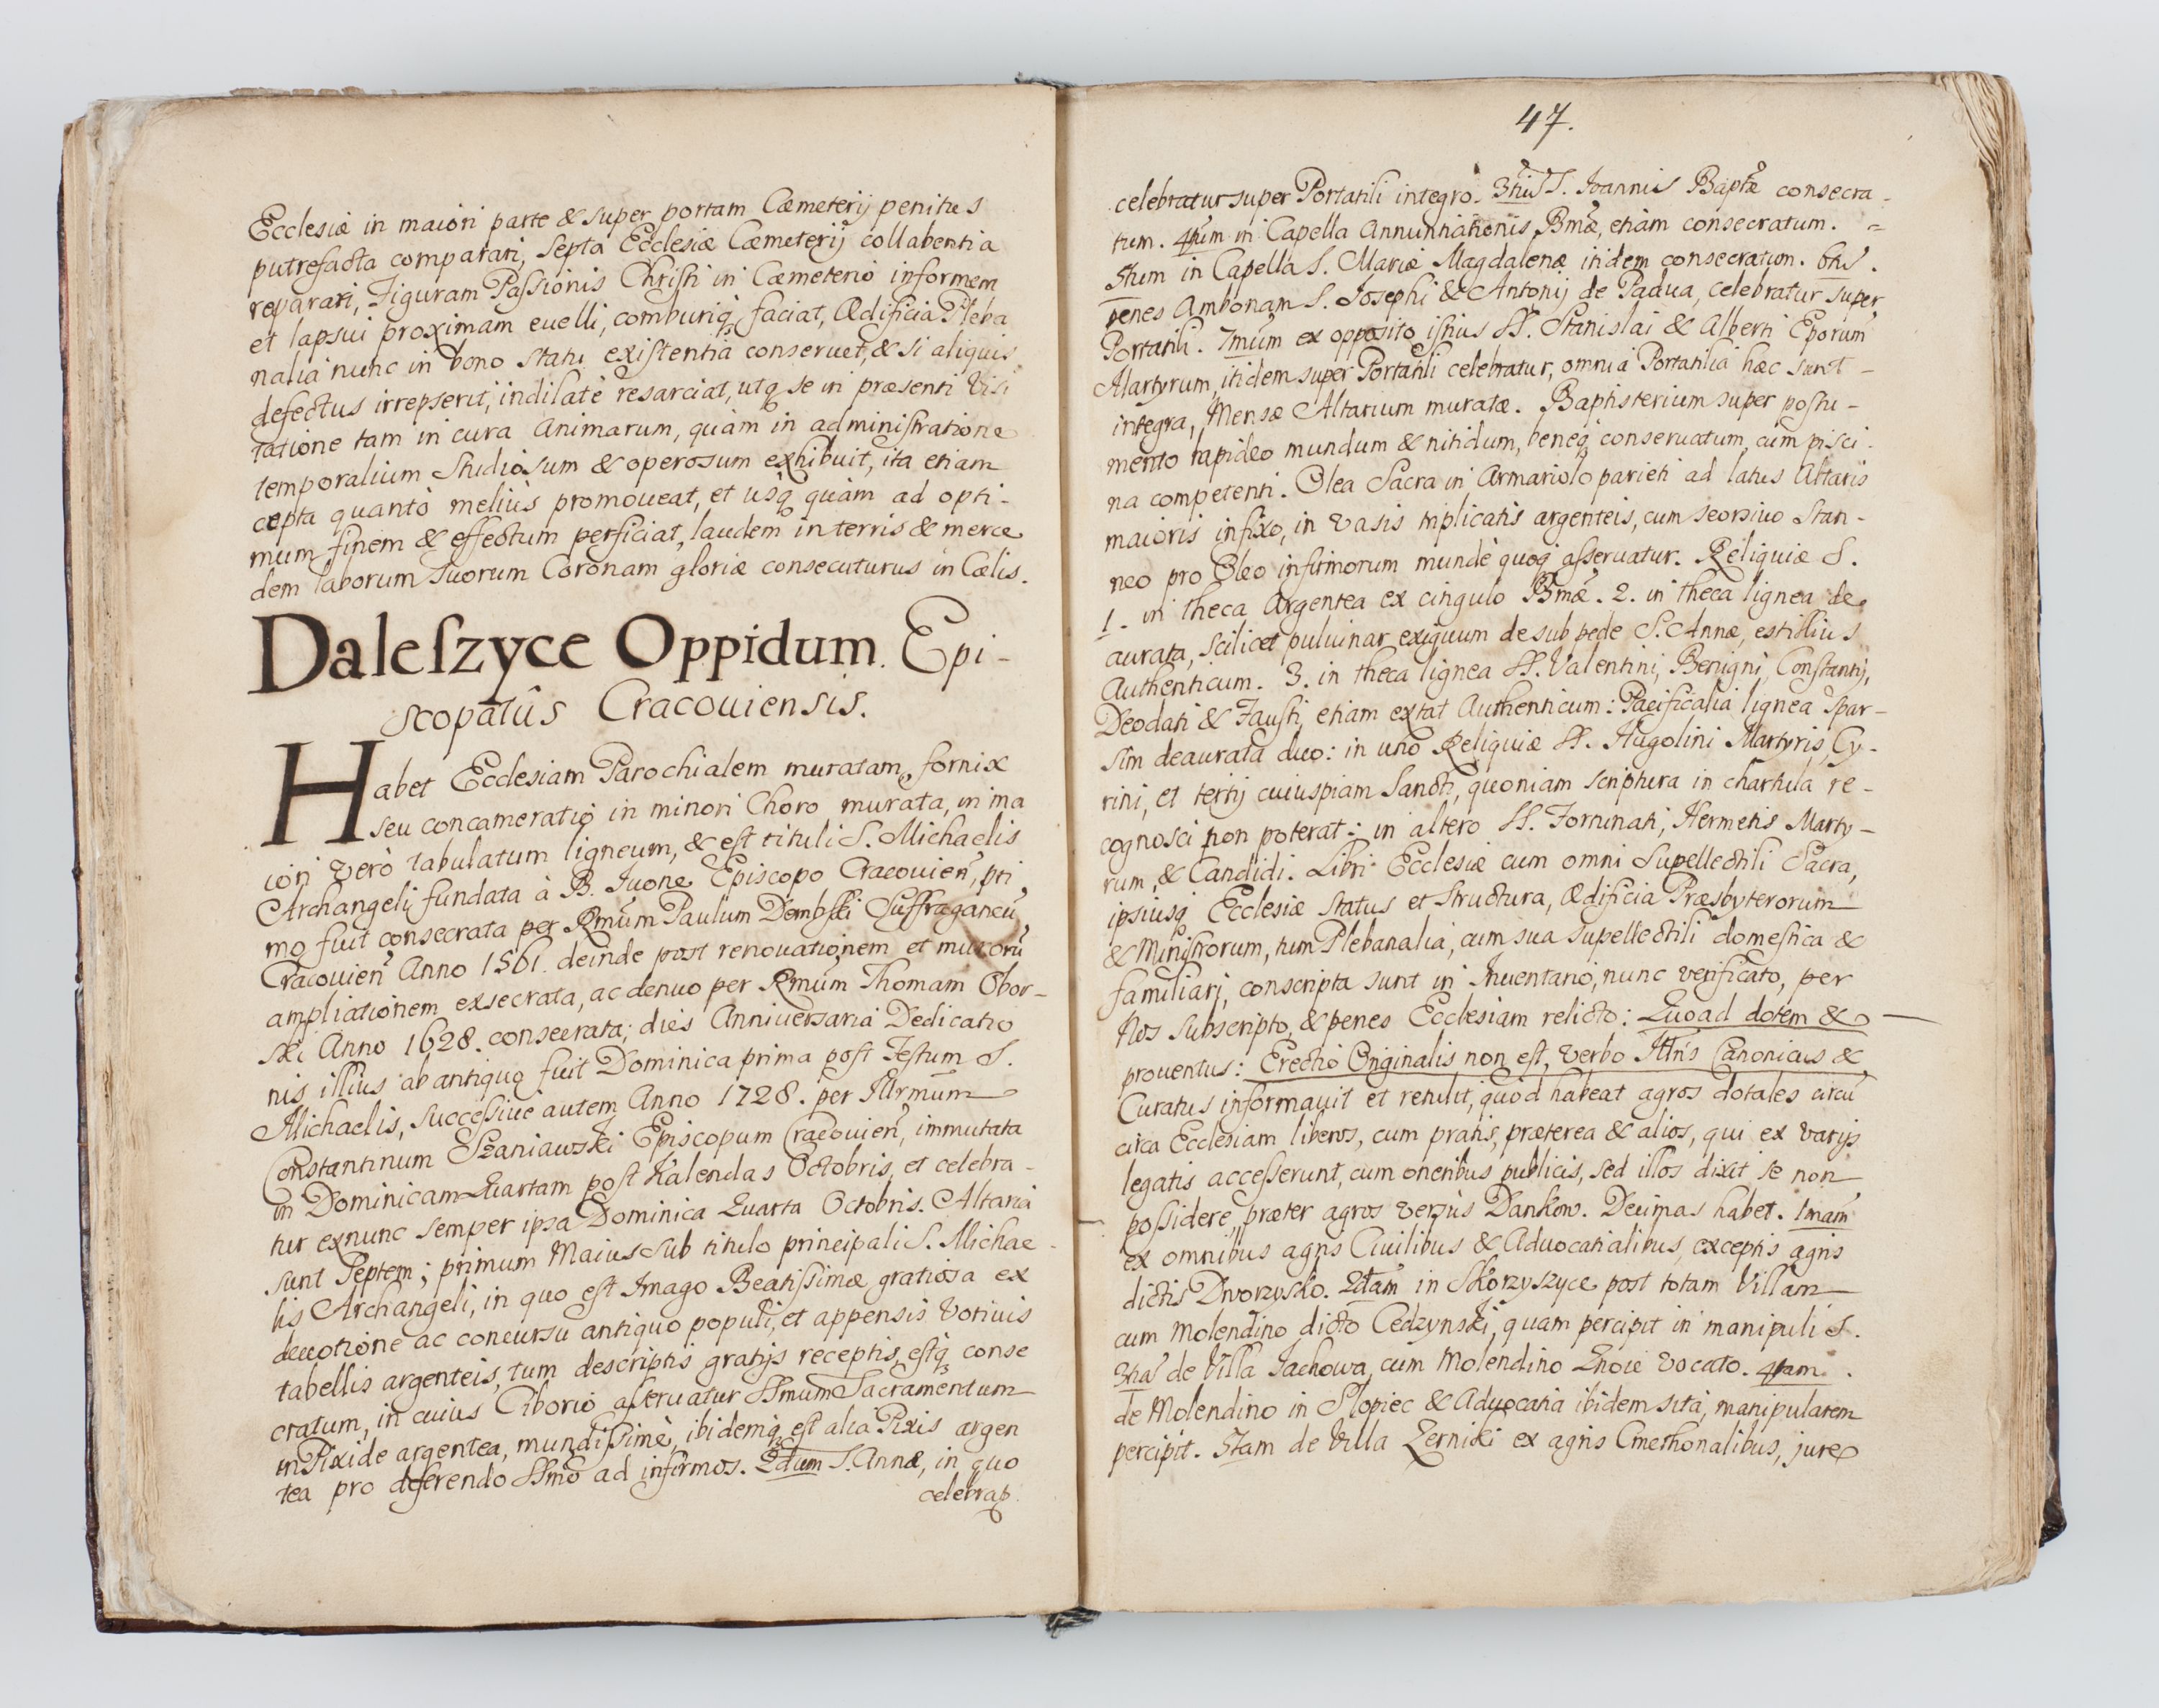 Ecclesiæ in maiori parte & super portam Cæmeterij penitus
putrefacta comparari, Septa Ecclesiæ Cæmeterij collabentia
reparari, Figuram Passionis Christi in Cæmeterio informem
et lapsui proximam euelli, comburiq; faciat, Ædificia Pleba
nalia nunc in bono statu existentia conseruet, & si aliquis
defectus irrepserit, indilatè resarciat, utq; se in præsenti Visi
tatione tam in cura Animarum, quàm in administratione
temporalium Studiosum & operosum exhibuit, ita etiam
cæpta quantò meliùs promoueat, et usq; quàm ad opti-
mum finem & effectum perficiat, laudem in terris & merce
dem laborum suorum Coronam gloriæ consecuturus in Cælis.
Daleſzyce Oppidum. Epi-
scopatûs Cracouiensis.
Habet Ecclesiam Parochialem muratam, fornix
seu concameratio in minori Choro murata, in ma
iori verò tabulatum ligneum, & est tituli S. Michaelis
Archangeli fundata à B. Iuone Episcopo Cracouien̄, pri
mo fuit consecrata per Rmum Paulum Dembski Suffraganeū
Cracouien̄ Anno 1561. deinde post renouationem et murorū
ampliationem exsecrata, ac denuo per Rmum Thomam Obor-
ski Anno 1628. consecrata; dies Anniuersaria Dedicatio
nis illius ab antiquo fuit Dominica prima post Festum S.
Michaelis, successiuè autem Anno 1728. per Illrmum
Constantinum Szaniawski Episcopum Cracouien̄, immutata
in Dominicam Quartam post Kalendas Octobris, et celebra-
tur exnunc semper ipsa Dominica Quarta Octobris. Altaria
sunt Septem; primum Maius sub titulo principali S. Michae-
lis Archangeli, in quo est Imago Beatissimæ gratiosa ex
deuotione ac concursu antiquo populi, et appensis Votiuis
tabellis argenteis, tum descriptis gratijs receptis, estq; conse
cratum, in cuius Ciborio asseruatur SSmum Sacramentum
in Pixide argentea, mundissimè, ibidemq; est alia Pixis argen
tea pro deferendo SSmo ad infirmos. 2dum S. Annæ, in quo
celebraꝭ
47.
celebratur super Portatili integro. 3tiū S. Ioannis Baptæ consecra-
tum. 4tum in Capella Annuntiationis Bmæ, etiam consecratum. =
5tum in Capella S. Mariæ Magdalenæ itidem consecratum. 6tū.
penes Ambonam S. Josephi & Antonij de Padua, celebratur super
Portatili. 7mum ex opposito istius SS. Stanislai & Alberti Eporum
Martyrum, itidem super Portatili celebratur, omnia Portatilia hæc sunt-
integra, Mensæ Altarium muratæ. Baptisterium super postu-
mento lapideo mundum & nitidum, beneq; conseruatum, cum pisci-
na competenti. Olea Sacra in Armariolo parieti ad latus Altaris
maioris infixo, in vasis triplicatis argenteis, cum seorsiuo Stan-
neo pro Oleo infirmorum mundè quoq; asseruatur. Reliquiæ S.
1. in theca Argentea ex cingulo Bmæ. 2. in theca lignea de
aurata, scilicet puluinar exiguum de sub pede S. Annæ, est illius
Authenticum. 3. in theca lignea SS. Valentini, Benigni, Constantij,
Deodati & Fausti, etiam extat Authenticum: Pacificalia lignea Spar-
sim deaurata duo: in uno Reliquiæ SS. Hugolini Martyris, Cy-
rini, et tertij cuiuspiam Sancti, quoniam scriptura in chartula re-
cognosci non poterat: in altero SS. Fortunati, Hermetis Marty-
rum, & Candidi. Libri Ecclesiæ cum omni Supellectili Sacra,
ipsiusq; Ecclesiæ Status et Structura, Ædificia Præsbyterorum
& Ministrorum, tum Plebanalia, cum sua supellectili domestica &
familiari, conscripta sunt in Inuentario, nunc verificato, per
Nos subscripto, & penes Ecclesiam relicto: Quoad dotem &
prouentus: Erectio Originalis non est, verbo Illris Canonicus &
Curatus informauit et retulit, quòd habeat agros dotales circū
circa Ecclesiam liberos, cum pratis, præterea & alios, qui ex varijs
legatis accesserunt, cum oneribus publicis, sed illos dixit se non
possidere, præter agros versùs Dankow. Decimas habet. 1mam
ex omnibus agris Ciuilibus & Aduocatialibus, exceptis agris
dictis Dworzysko. 2dam in Skorzyszyce post totam Villam
cum Molendino dicto Cedzynski, quam percipit in manipulis.
3tiā de Villa Jachowa, cum Molendino Znoie vocato. 4tam.
de Molendino in Slopiec & Aduocatia ibidem sita, manipularem
percipit. 5tam de Villa Zerniki ex agris Cmethonalibus, jure